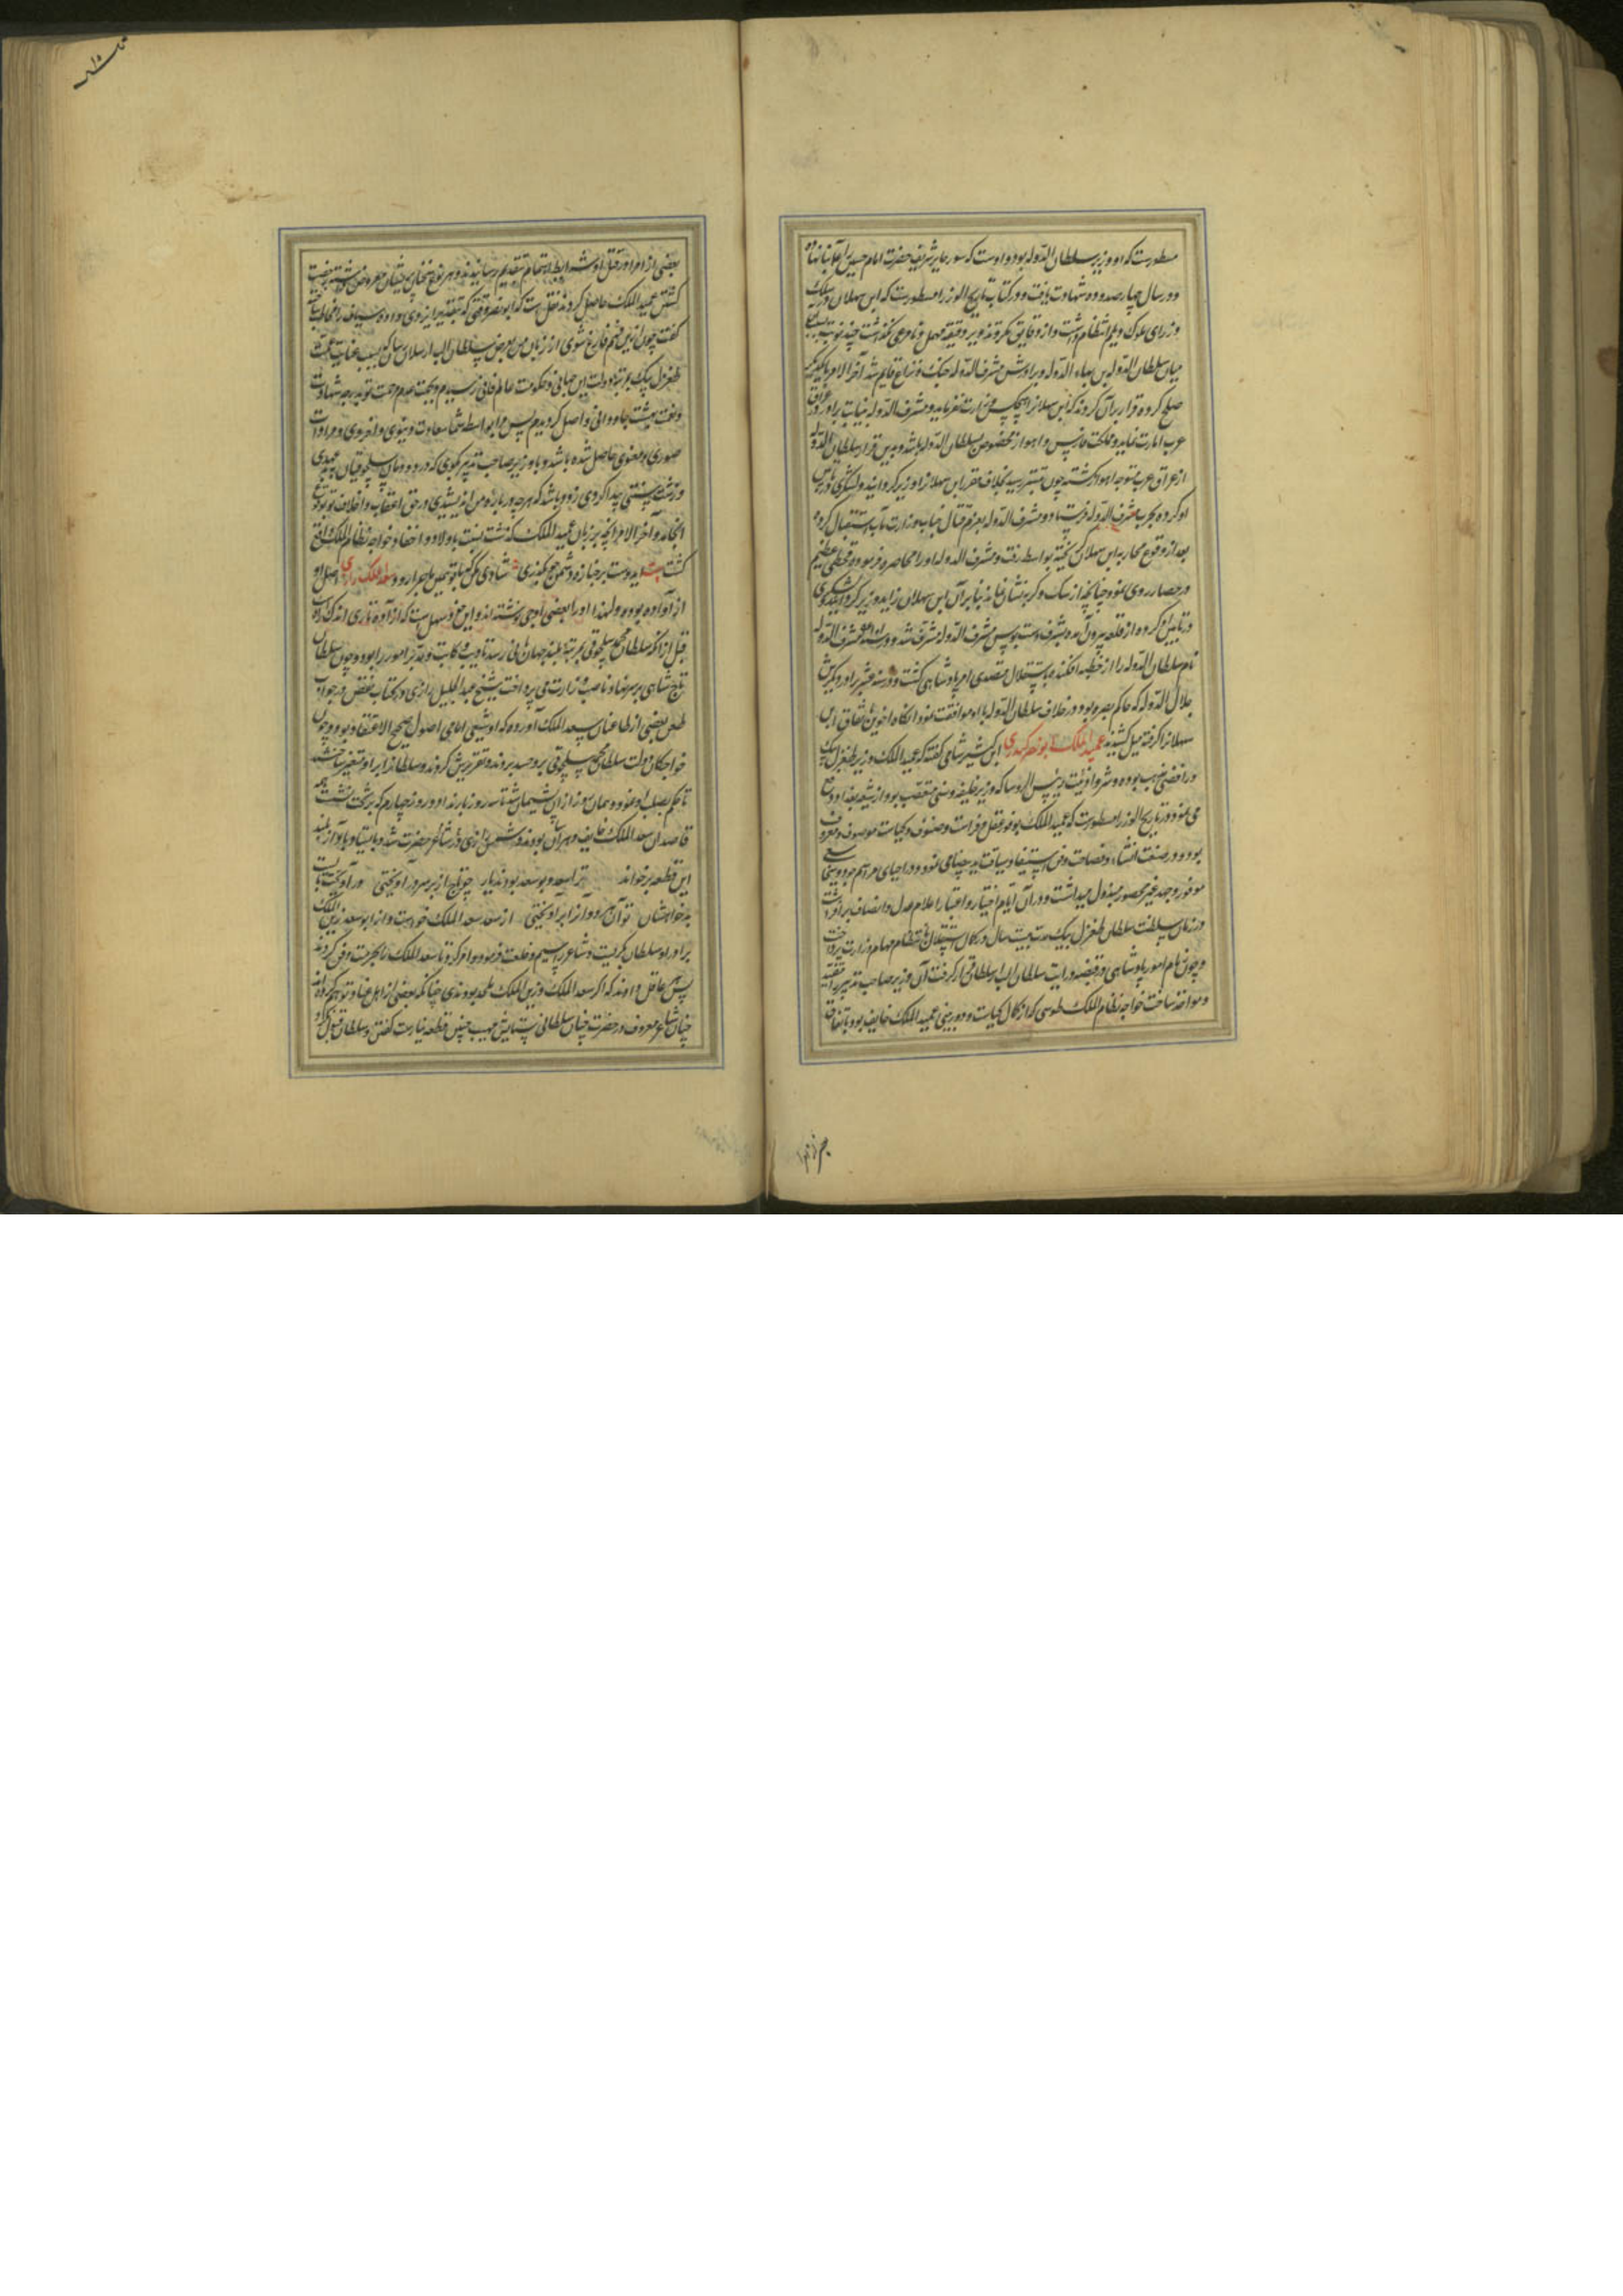 مسطورست که او وزیر سلطان الدوله بود و اوست که سور حایر شریف حضرت امام حسین را بنا نهاده
و در سال چهار صد و ده شهادت یافت و در کتاب تاریخ الوزرا مسطورست که ابن سهلان در سلک
وزرای ملوک دیلم انتظام داشت و از دقایق مکر و تزویر دقیقه مهمل و نامرعی نگذاشت چند نوبت
میان سلطان الدوله بن بهاء الدوله و برادرش مشرف الدوله جنک و نزاع قایم شد آخر الامر با یکدیگر
صلح کرده قرار بر آن کردند که ابن سهلانرا هیچکس وزارت نفرماید و مشرف الدوله بنیابت برادر در عراق
عرب امارت نماید و مملکت فارس و اهواز مخصوص سلطان الدوله باشد و بدین قرار سلطان الدوله
از عراق عرب متوجه اهواز گشته چون بتستر رسید بخلاف مقرر ابن سهلانرا وزیر گردانید و لشکری
او کرده بحرب مشرف الدوله فرستاد و مشرف الدوله بعزم قتال جناب وزارت مآب استقبال کرده
بعد از وقوع محاربه ابن سهلان گریخته بواسط رفت و مشرف الدوله او را محاصره فرموده قحطی عظیم
در حصار روی نمود چنانچه از سک و گربه نشان نماند بنا بر آن ابن سهلان
از قلعه بیرون آمد و بشرف دستبوس مشرف الدوله مشرف شد و مشرف الدوله
نام سلطان الدوله را از خطبه افکند و باستقلال متصدی امر پادشاهی گشت و برادر دیگرش
جلال الدوله که حاکم بصره بود در خلاف سلطان الدوله با او موافقت نمود آنگاه اخوین باتفاق ابن
سهلانرا گرفته میل کشیدند عمید الملک ابونصر کندری ابن کثیر شامی گفته که عمید الملک وزیر طغرل بیک
رافضی مذهب بوده و رئیس الروسا که وزیر خلیفه و سنی متعصب بود از شیعه بغداد
می نمود و در تاریخ الوزرا مسطورست که عمید الملک بوفور عقل و فراست و صنوف و کیاست موصوف و معروف
بود و در صنعت انشاء و فصاحت و فن استیفا و سیاقت ید بیضا می نمود و در احیای مراسم
موفور و جهد غیر محصور مبذول میداشت و در آن ایام اختیار و اعتبار اعلام عدل و انصاف برافراشت
در زمان سلطنت سلطان طغرل بیک مدت بیست سال در کمال استقلال بانتظام مهام وزارت پرداخت
و چون زمام امور پادشاهی در قبضه درایت سلطان الب ارسلان قرار گرفت آن وزیر صاحب تدبیر را مقید
و مؤاخذ ساخت خواجه نظام الملک طوسی که از کمال کیاست و دوربینی عمید الملک خایف بود باتفاق
بعضی از امرا در قتل او شرایط اهتمام بتقدیم رسانیدند و بهر نوع سخنان پریشان معروض داشته رخصت
کشتن عمید الملک حاصل کردند نقل است که ابونصر وقتی که بتقدیر ایزدی دل داده سیاف را مخاطب ساخته
گفت چون ازین مهم فارغ شوی از زبان من بعرض سلطان الب ارسلان رسان که بسبب عنایت عمت
طغرل بیک بمرتبه دولت این جهانی و حکومت عالم فانی رسیدم و بجهت عدم مرحمت تو بدرجه شهادت
و نعمت بهشت جاودانی واصل گردیدم پس مرا بواسطه شما سعادت دنیوی و اخروی و مرادات
صوری و معنوی حاصل شده باشد و با وزیر صاحب تدبیر بگوی که در دودمان سلجوقیان بد عهدی
و زشت سنتی پیدا کردی زود باشد که هر چه در باره من اندیشیدی در حق اعقاب و اخلاف تو بوقوع
انجامد و آخر الامر آنچه بر زبان عمید الملک گذشت نسبت باولاد و احفاد خواجه نظام الملک واقع
گشت بیت ای دوست بر جنازه دشمن چو بگذری شادی مکن که با تو همین ماجرا رود سعد الملک رازی اصل او
از آوه بوده و لهذا او را بعضی آوجی نوشته اند و این سهل است که از آوه تا ری اندک
قبل از آنکه سلطان محمد سلجوقی بمرتبه بلند جهانبانی رسد نایب و کاتب و مدبر امور را بود و چون سلطان
تاج شاهی بر سر نهاد بمناصب وزارت می پرداخت شیخ عبد الجلیل رازی در کتاب نقض در جواب
طعن بعضی از طاعنان سعد الملک آورده که او شیعی امامی اصولی صحیح الاعتقاد بود و چون
خواجگان دولت سلطان محمد سلجوقی برو حسد بردند و تقریرش کردند و سلطانرا بر او متغیر ساختند
تا حکم بصلب او نمود و همان روز از آن پشیمان شد تا سه روز بار نداد و روز چهارم که بر تخت نشست همه
قاصدان سعد الملک خایف و هراسان بودند و شمس رازی در حضرت شد و بایستاد و بآواز بلند
این قطعه برخواند ترا سعد و بوسعد بودند یار چو تاج از بر سر درآویختی
بدخواهشان تو آن هر دو را برآویختی از سعد سعد الملک خواست و از ابوسعد زین الملک
برادر او سلطان بگریست و شاعر را سیم و خلعت فرمود و امر کرد تا سعد الملک را بحرمت دفن کردند
پس عاقل داند که اگر سعد الملک و زین الملک ملحد بودندی چنانکه بعضی از اهل عناد توهم کرده اند
چنان شاعر معروف در حضرت چنان سلطانی بستایش مهیب چنین قطعه نیارست گفتن و سلطان قبول نکردی